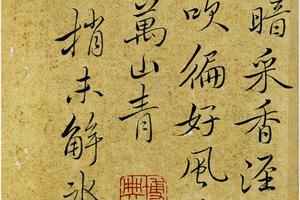 暗采香泾
吹徧好風
萬山青
梢未解冰